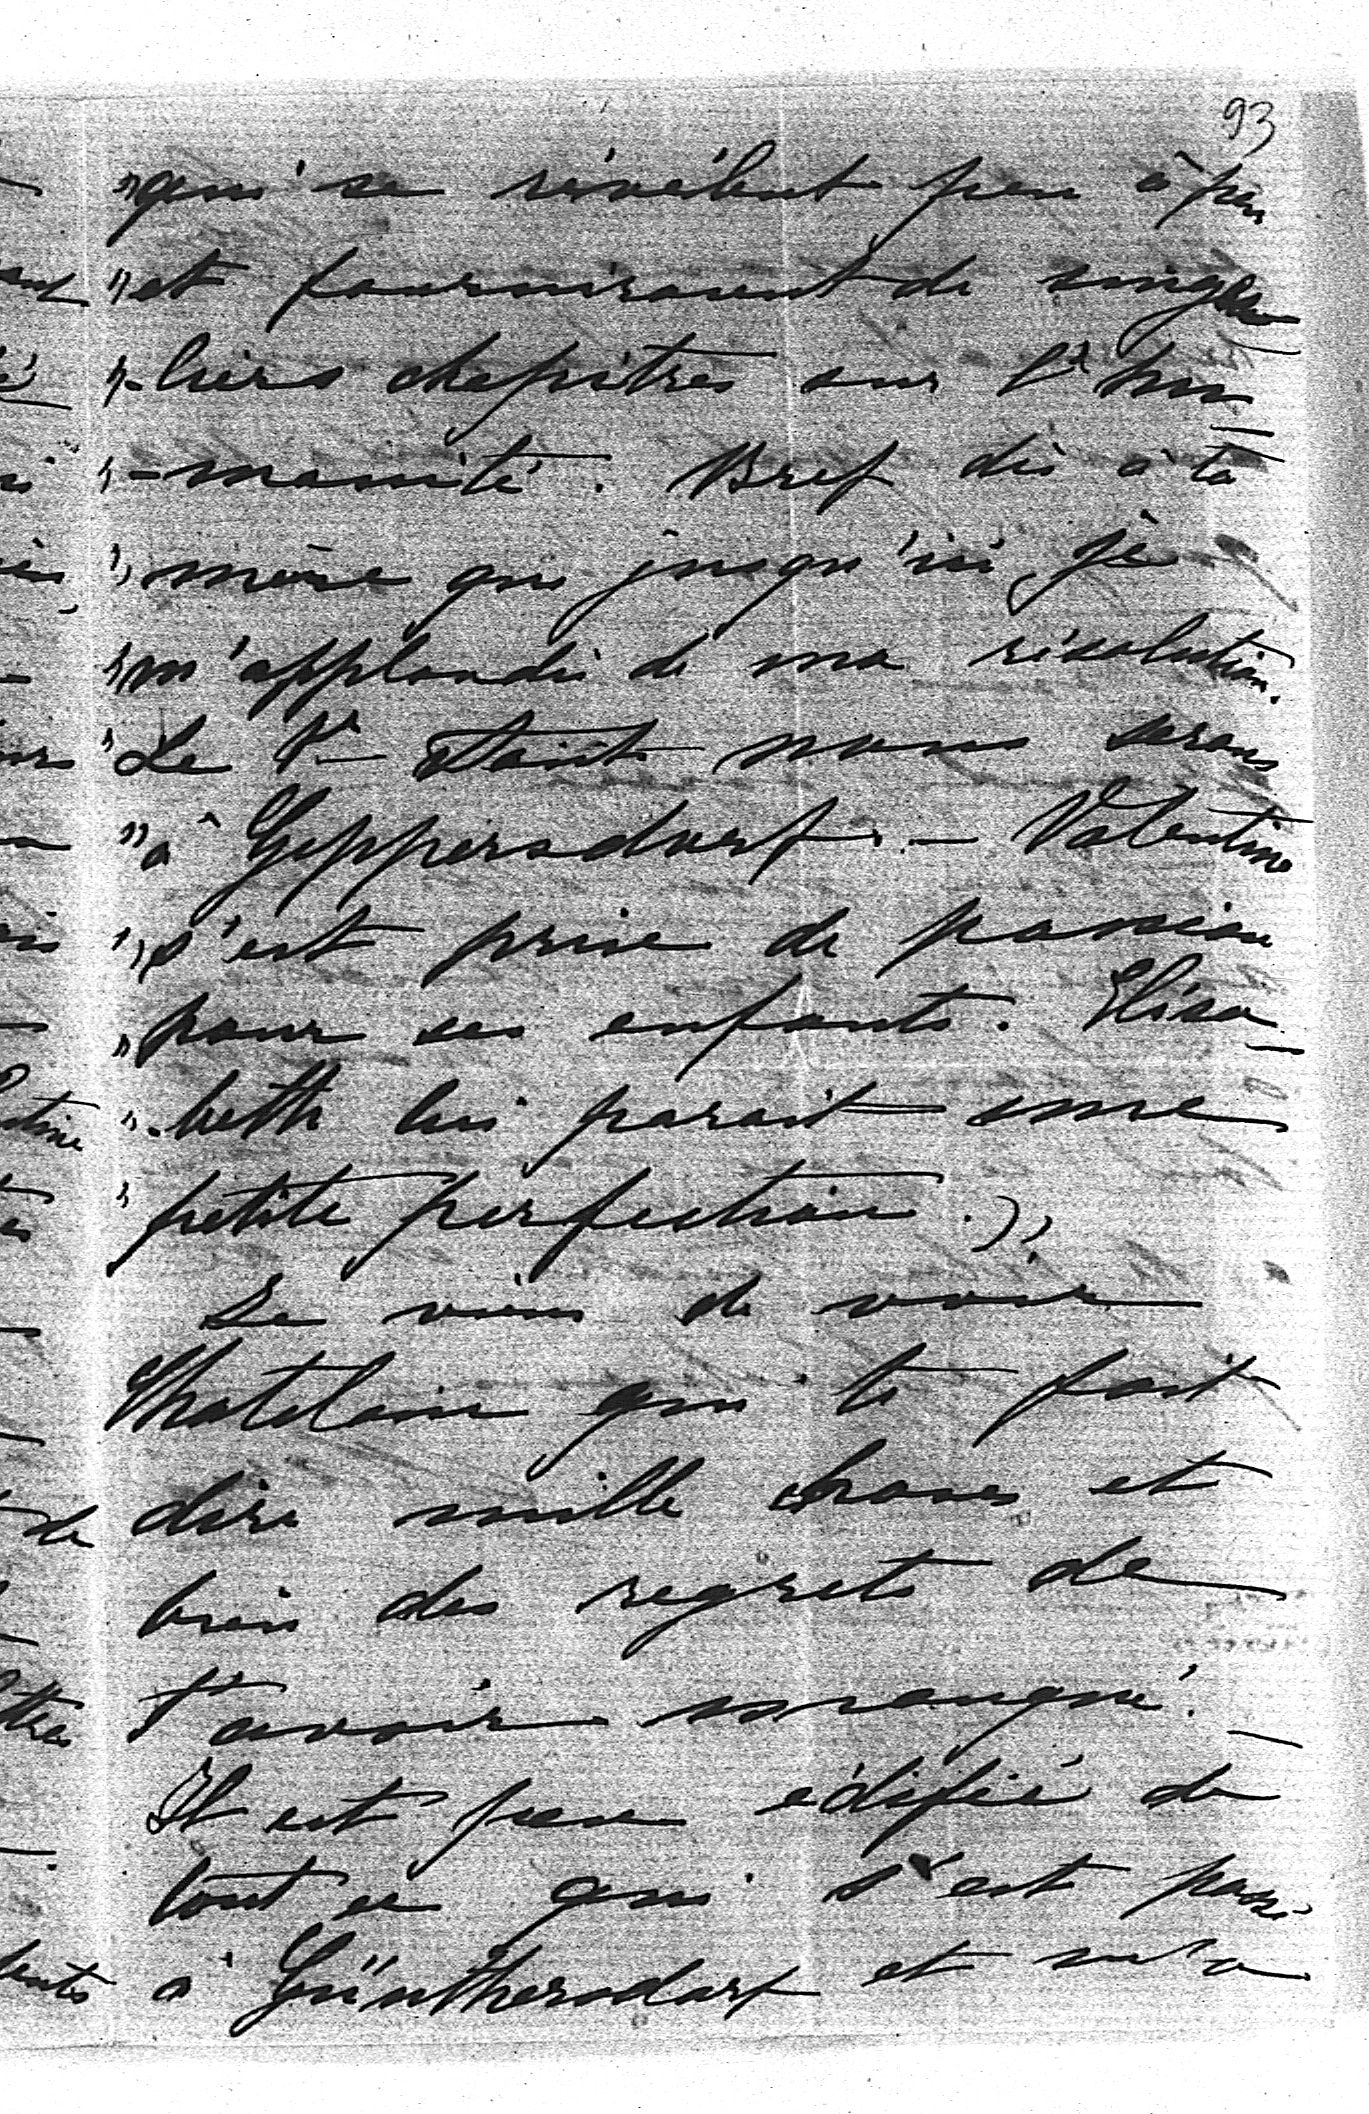 93
"qui se révèlent peu à peu
"et fourniraient de singu
"-liers chapitres sur l'hu
"-manité. Bref dis à ta
"mère que jusqu'ici, je
"m'applaudis de ma résolution.
"Le 1er Août nous serons
"à Geppersdorf. — Valentine
"s'est prise de passion
"pour ses enfants. Elisa
"-beth lui parait une
"petite perfection.")
Je viens de voir
Chatelain qui te fait
dire mille choses et
bien des regrets de
t'avoir manqué. —
Il est peu édifié de
tout ce qui s'est passé
à Günthersdorf et m'a